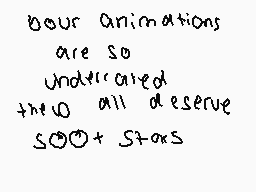 your animations
are so
underrated
they all deserve
500+ stars